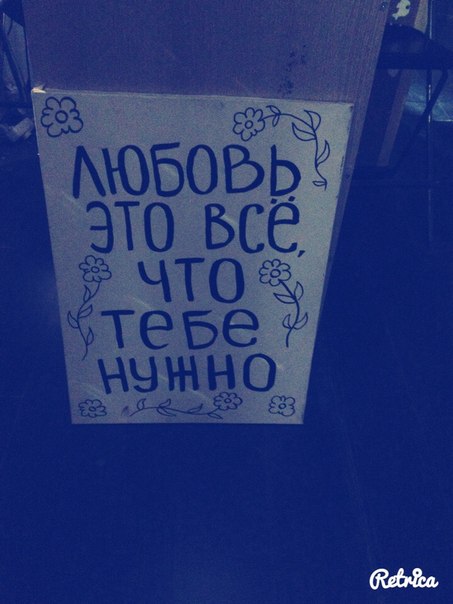 ЛЮБОВЬ
ЭТО ВСЁ,
ЧТО
ТЕБЕ
НУЖНО
Retrica